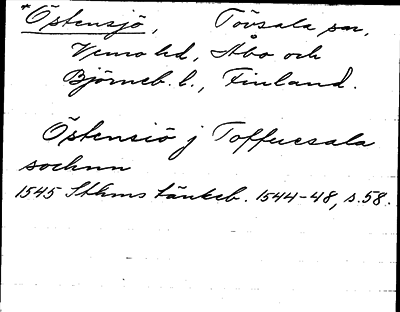 *Östensjö, Tövsala sn,
Vemo hd, Åbo och
Björneb. l., Finland.
Östensiö j Toffuesala
sochnn
1545 Sthms tänkeb. 1544-48, s. 58.